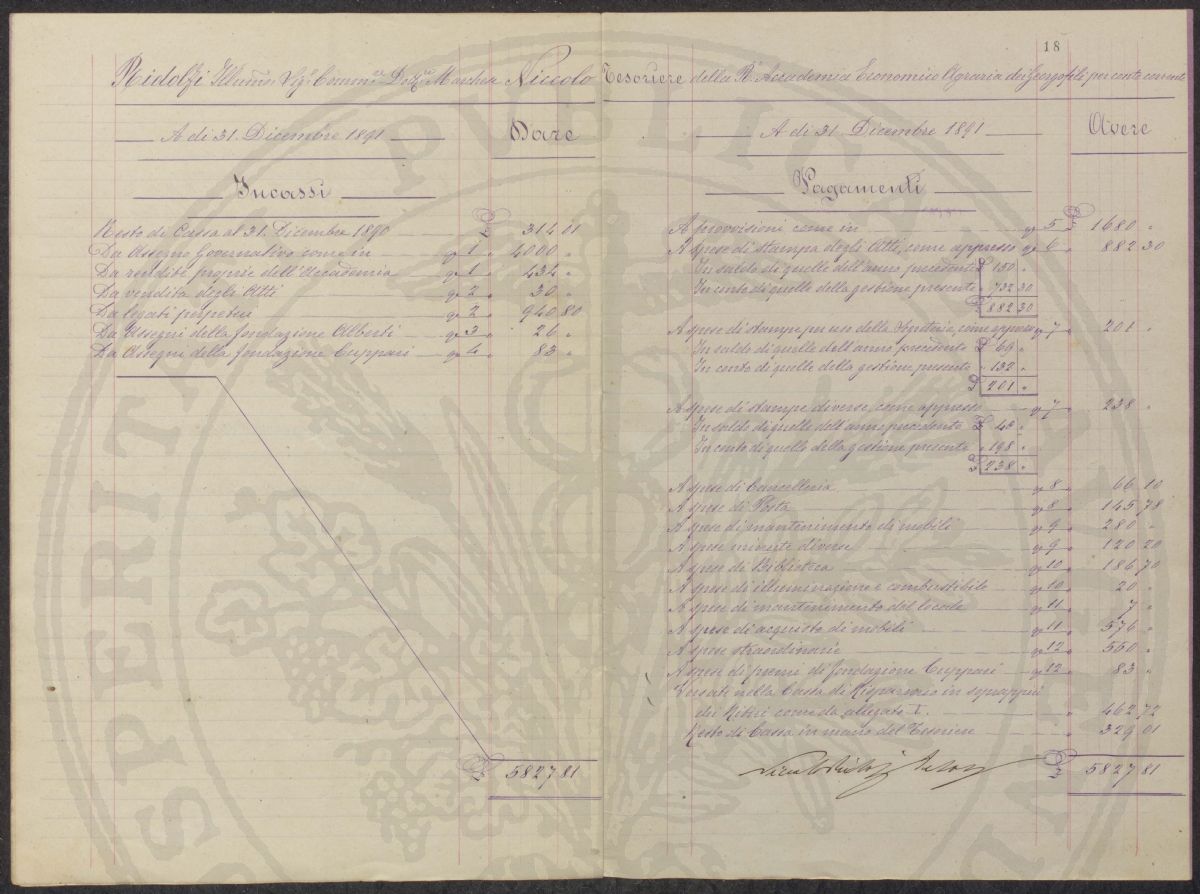 18
Ridolfi Illumo Sigr Commre Dottre Marchese Niccolo Tesoriere della Ra Accademia Economico Agraria dei Georgofili per conto corrente
A di 31. Dicembre 1891 Dare
Incassi
Resto di Cassa al 31. Dicembre 1890 £ 314 01
Da Assegno Governativo come in 1 " 4000 "
Da rendite proprie dell'Accademia 1 " 434 "
Da vendita degli Atti 2 " 30 "
Da legati perpetui 2 " 940 80
Da Assegni della fondazione Alberti 3 " 26 "
Da Assegni della fondazione Cuppari 4 " 83 "
£ 5827 81
A di 31. Dicembre 1891 Avere
Pagamenti
A provvisioni come in 5 £ 1680 "
A spese di stampa degli Atti, come appresso 6 " 882 30
In saldo di quelle dell'anno precedente £ 150 "
In conto di quelle della gestione presente " 732 30
£ 882 30
A spese di stampe per uso della Segreteria, come appresso 7 " 201 "
In saldo di quelle dell'anno precedente £ 69 "
In conto di quelle della gestione presente " 132 "
£ 201 "
A spese di stampe diverse, come appresso 7 " 238 "
In saldo di quelle dell'anno precedente £ 40 "
In conto di quelle della gestione presente " 198 "
£ 238 "
A spese di Cancelleria 8 " 66 10
A spese di Posta 8 " 145 78
A spese di mantenimento di mobili 9 " 280 "
A spese minute diverse 9 " 120 20
A spese di Biblioteca 10 " 186 70
A spese di illuminazione e combustibile 10 " 20 "
A spese di mantenimento del locale 11 " 7 "
A spese di acquisto di mobili 11 " 576 "
A spese straordinarie 12 " 550 "
A spese di premi di fondazione Cuppari 12 " 83 "
Versate nella Cassa di Risparmio in
dei Ritiri come da allegato I. " 462 72
Resto di Cassa in mano del Tesoriere " 329 01
£ 5827 81
SPERITA PUBLICA